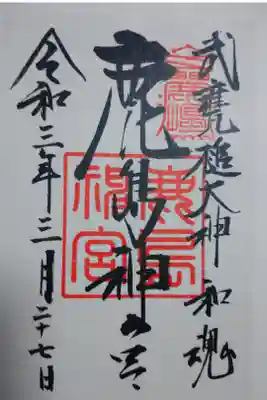 武甕槌大神 和魂
鹿島神宮
令和三年三月二十七日